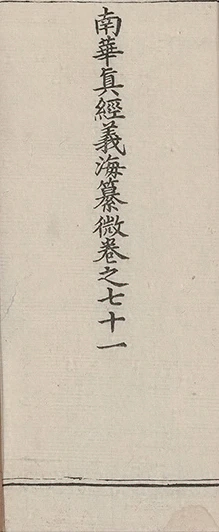 南華真經義海纂微卷之七十一